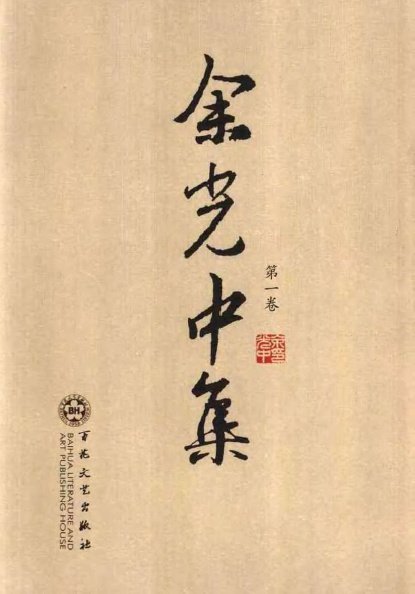 余光中集
第一卷
余光中
BH
百花文艺出版社
BAIHUA LITERATURE AND
ART PUBLISHING HOUSE